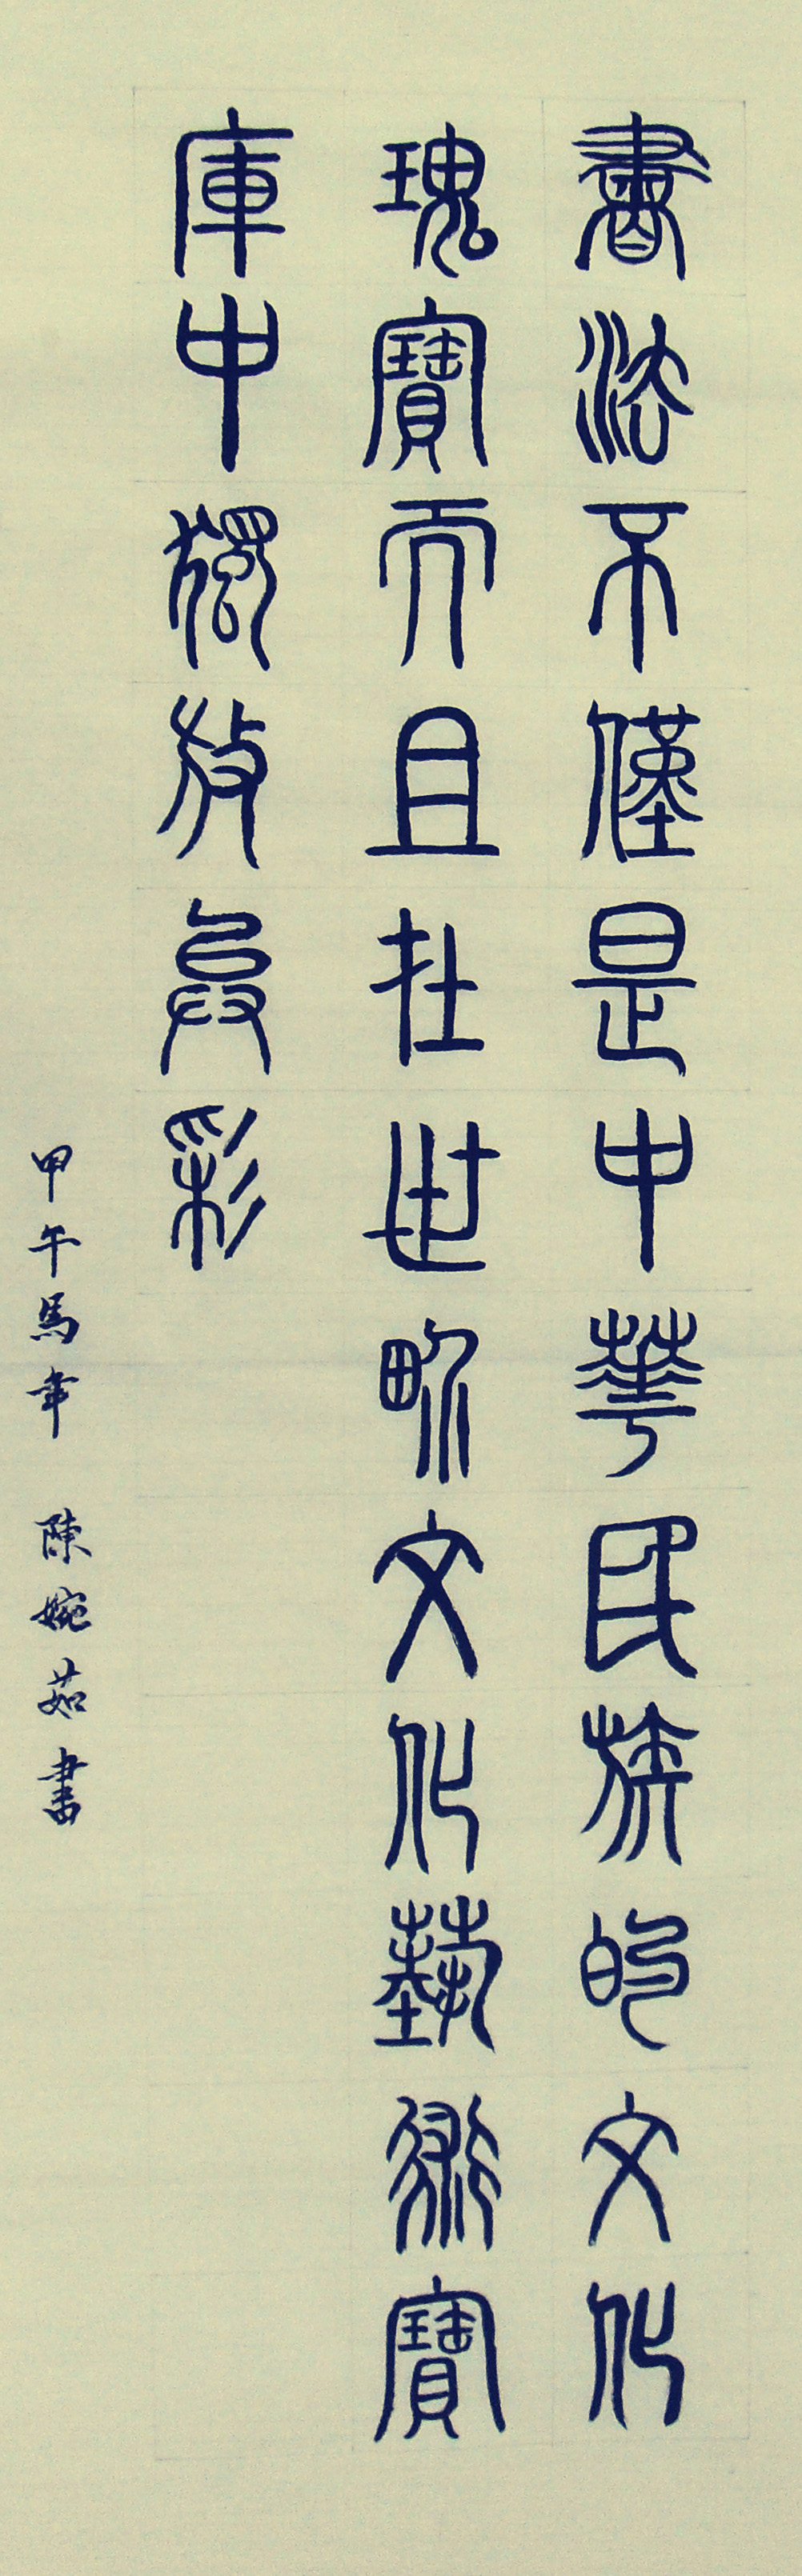 書法不僅是中華民族的文化
瑰寶而且在世界文化藝術寶
庫中獨放異彩
甲午馬年 陳婉茹書